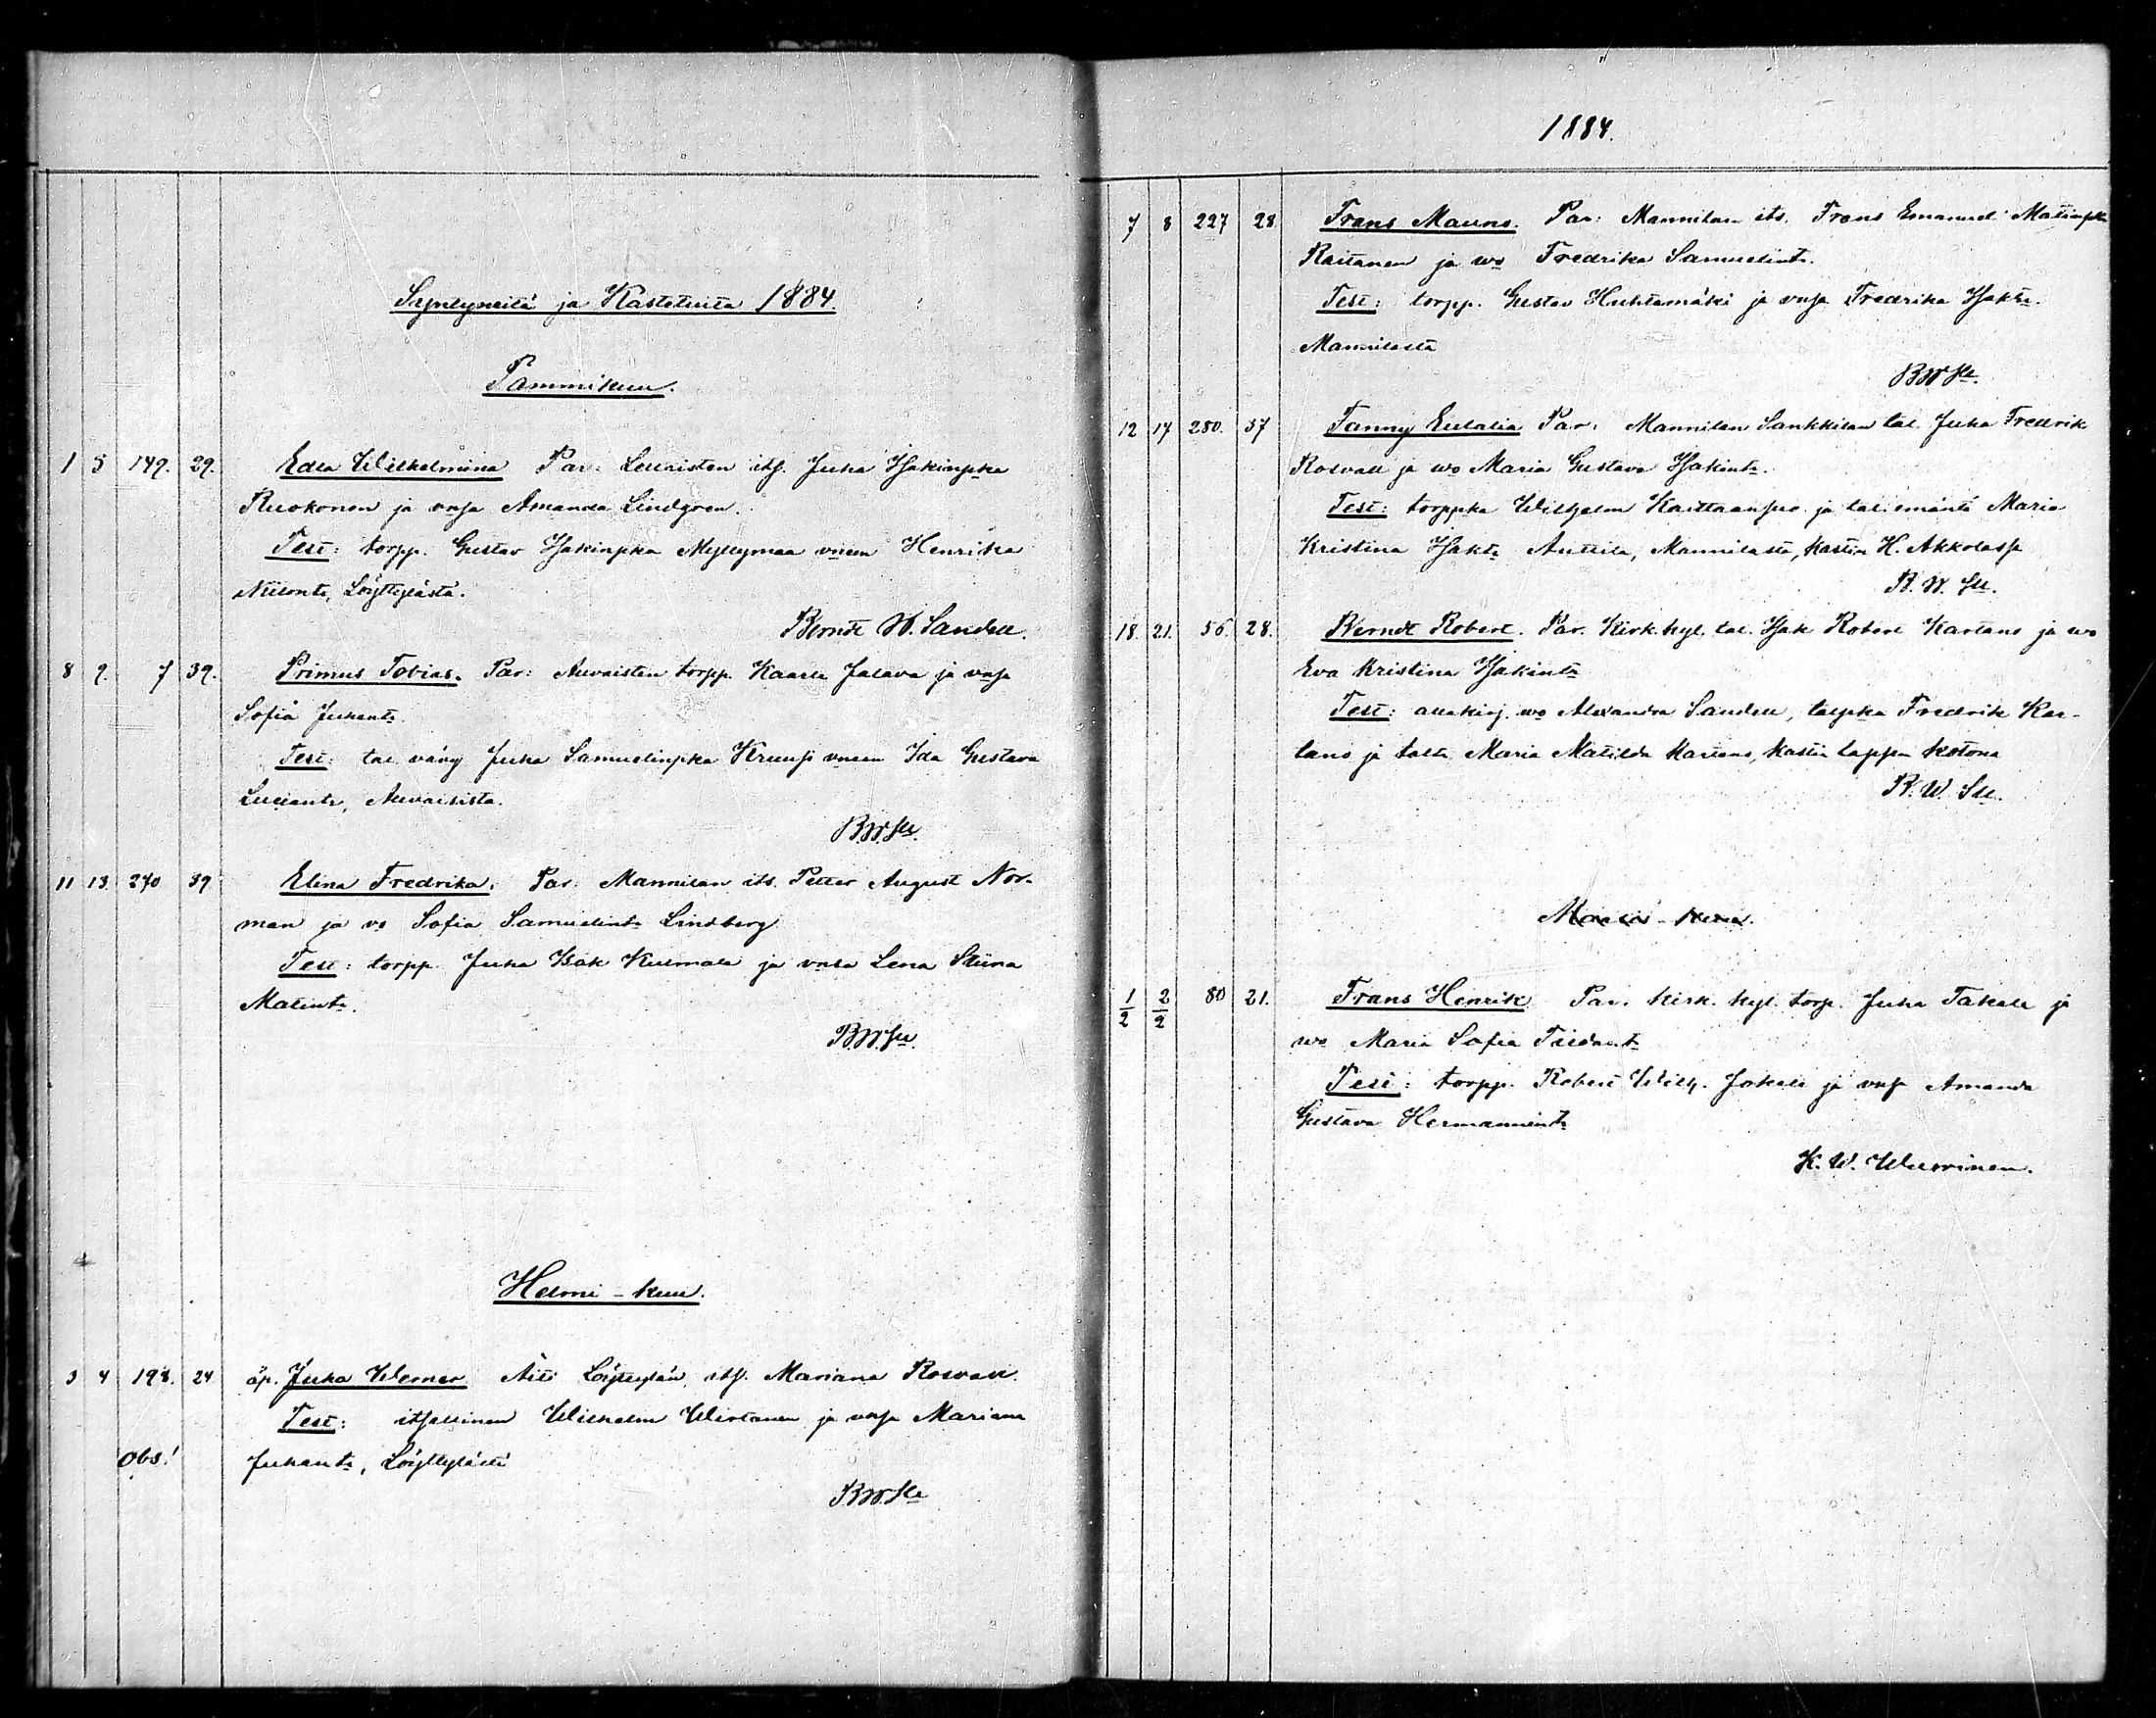 Syntyneitä ja Kastetuita 1884.
Tammikuu.
1 5 149. 29. Edla Wilhelmina Par. Leuvaisten itsl. Juha Isakinpka
Ruokonen ja vmsa Amanda Lindgren.
Test: torpp. Gustav Isakinpka Myllymaa vneen Henrika
Niilonts, Löyttylästä.
Berndt W. Sandell.
8 9. 7 39. Primus Tobias. Par: Auvaisten torpp. Kaarle Jalava ja vmsa
Sofia Juhants.
Test: tal. vävy Juha Samuelinpka Kruusi vneen Ida Gustava
Auvaisista.
B.W.Sll.
11 13 240 39 Elina Fredrika. Par: Mannilan its. Petter August Nor-
man ja vo Sofia Samuelints Lindberg
Test: torpp. Juha Isak Kulmala ja vmsa Lena Stiina
Matints.
B.W.Sll.
Helmi-kuu.
3 4 198. 24 äp. Juha Werner Äiti Löyttylän, itsl. Mariana Rosvall.
Test: itsellinen Wilhelm Wirtanen ja vmsa Mariana
Obs! Juhants, Löyttylästä
B.W.Sll
1884.
7 8 227 28. Frans Mauno. Par: Mannilan its. Frans Emanuel Matinpka
Raitanen ja wo Fredrika Samuelints.
Test: torpp. Gustav Huhtamäki ja vmsa Fredrika Isakts.
Mannilasta
B W Sll.
12 17 280. 37 Fanny Eulalia Par: Mannilan Sankkilan tal. Juha Fredrik
Rosvall ja wo Maria Gustava Isakints.
Test: torppka Wilhelm ja tal. emäntä Maria
Kristina Isakts Anttila, Mannilasta, kastin H. Akkolassa
B. W. Sll.
18. 21. 56. 28. Berndt Robert. Par. Kirk. kyl. tal. Isak Robert Kartano ja wo
Eva Kristina Isakints
Test: wo Alexandra Sandell, Fredrik Kar-
tano ja Maria Matilda Kartano, kastin lapsen kotona
B. W. Sll.
Maalis-kuu.
1/2 2/2 80 21. Frans Henrik Par. Kirk. kyl. torp. Juha Takala ja
wo Maria Sofia
Test: torpp. Robert Wilh. Jokela ja vmsa Amanda
Gustava Hermannints
K. W. Wuorinen.